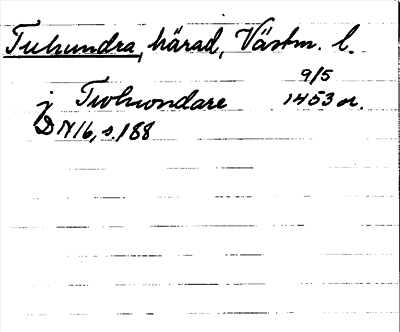 Tuhundra, härad, Västm. l.
9/5
j Twhwondare 1453 or.
DN 16, s. 188